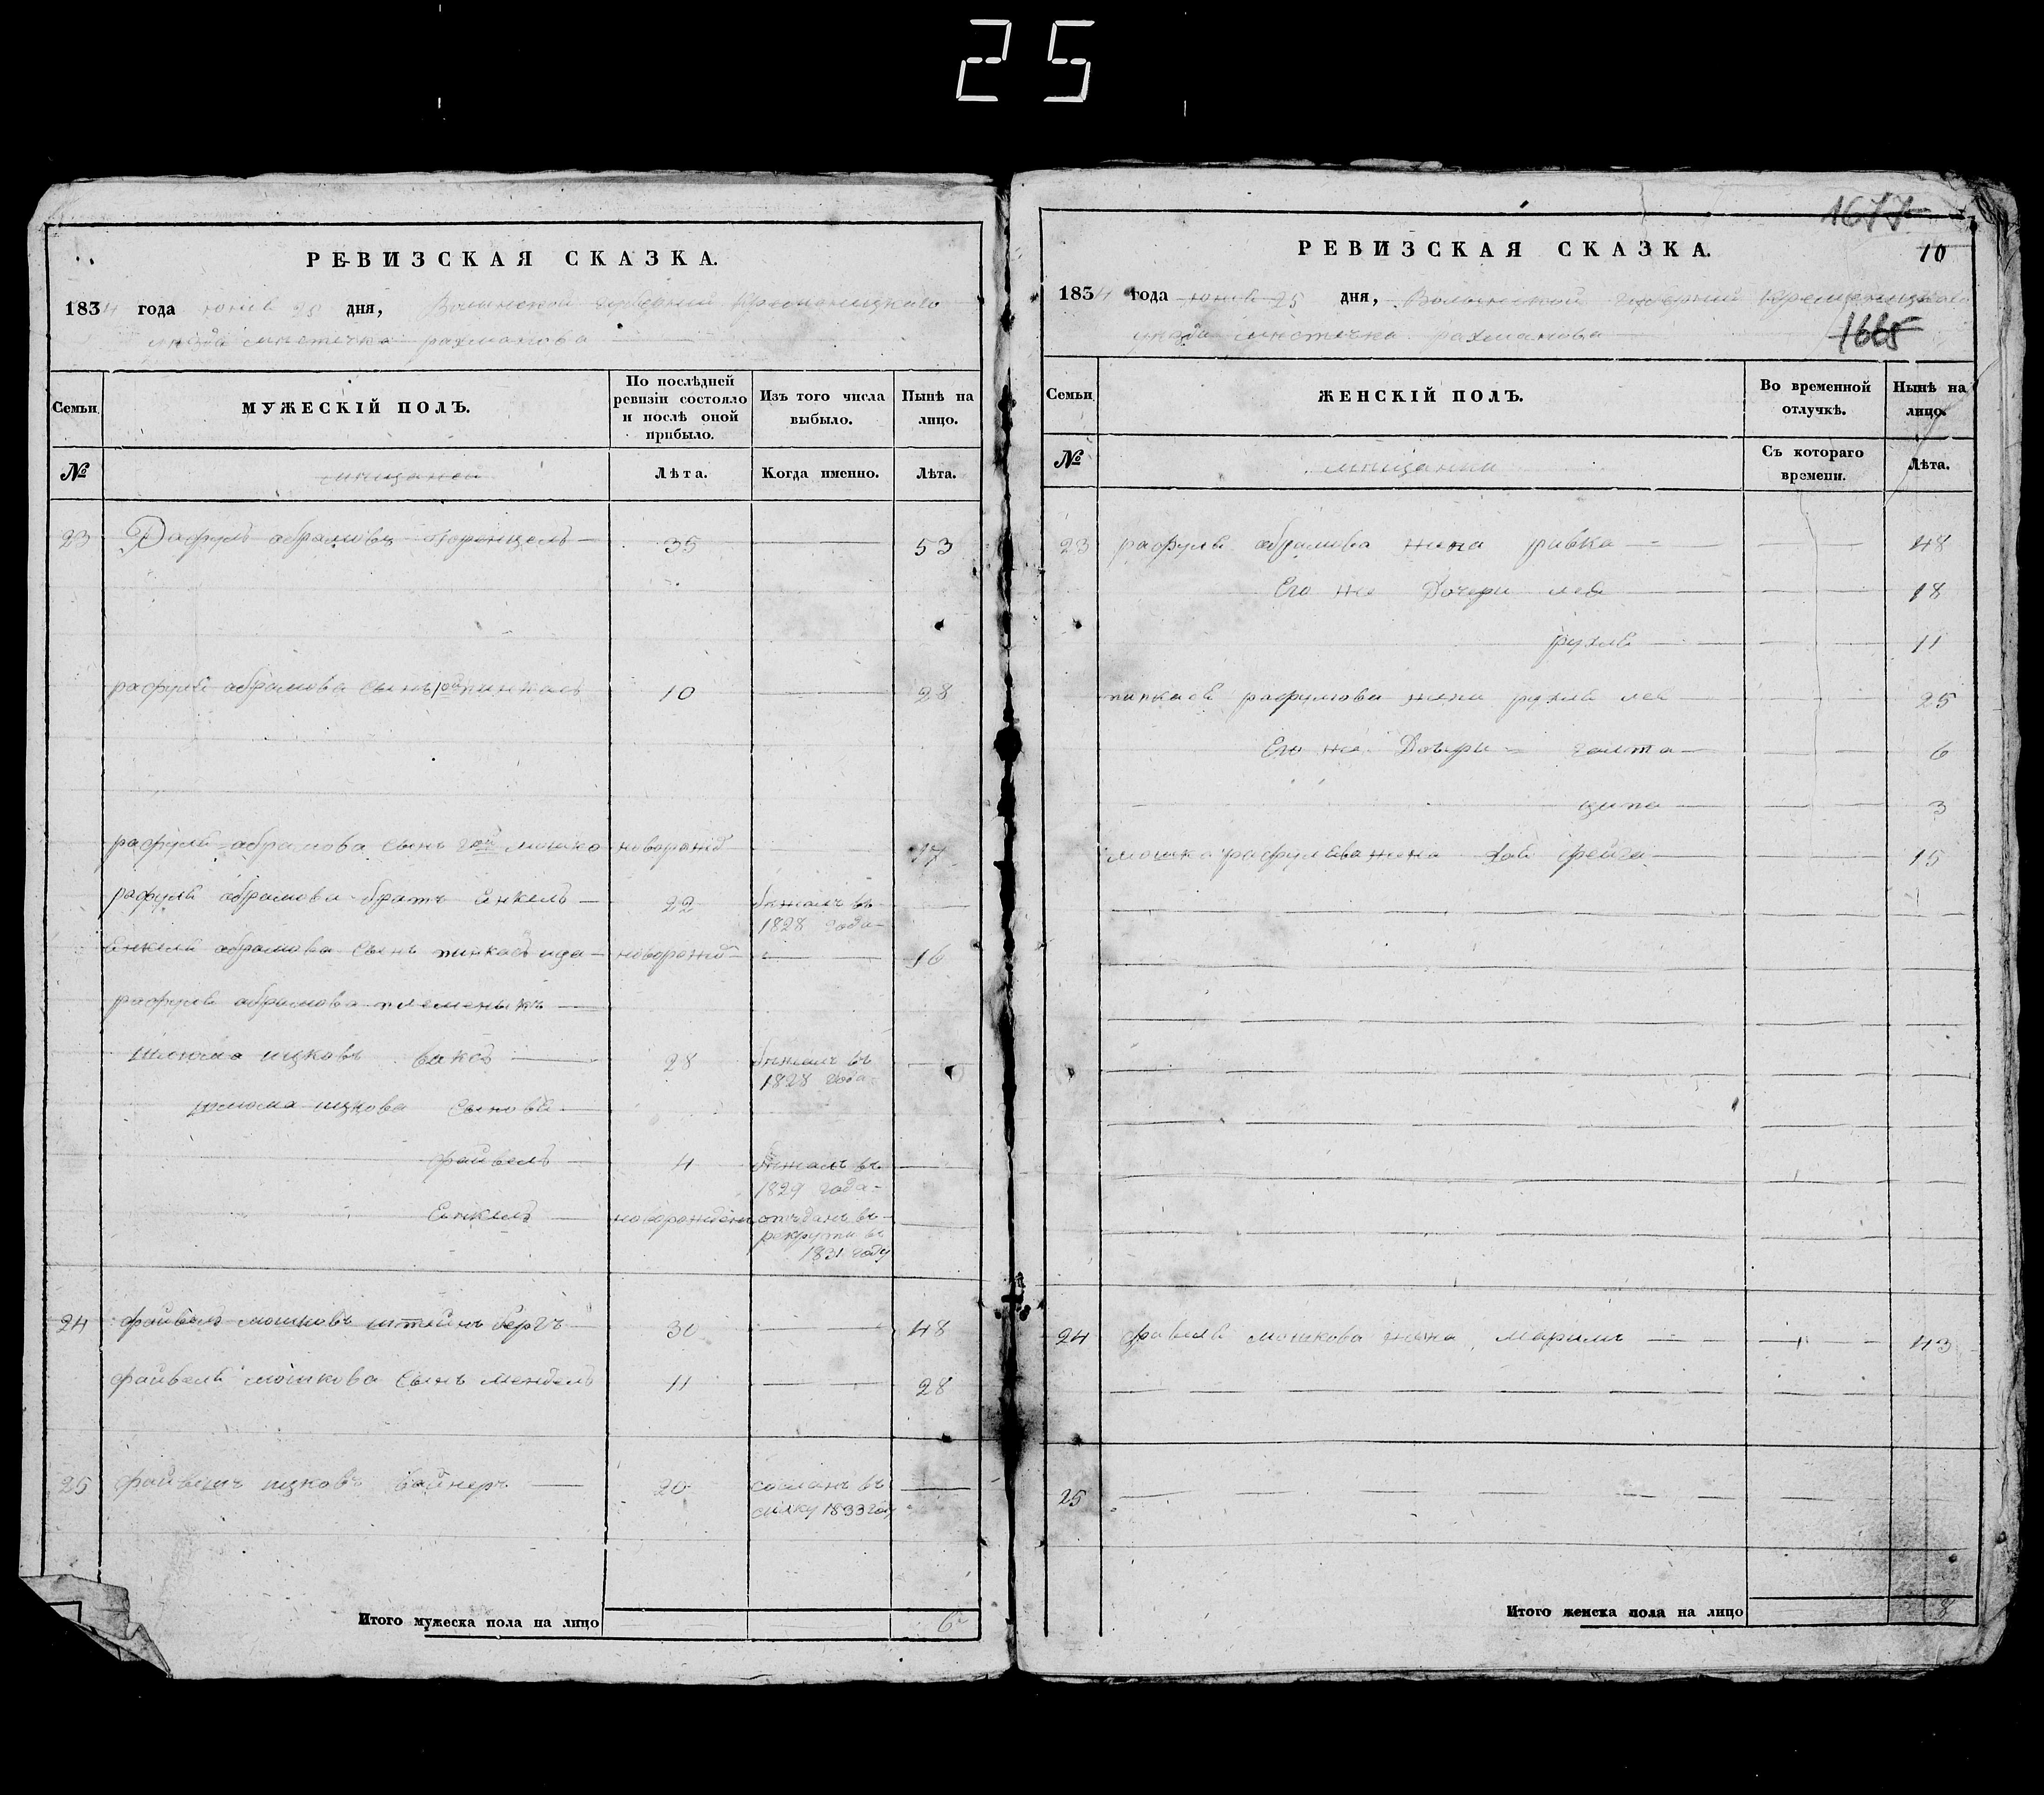 25
РЕВИЗСКАЯ СКАЗКА.
1834 года юня 25 дня, Волынской губерній Кременицкаго
уезда местечка рахманова
Семьи.
МУЖЕСКІЙ ПОЛЪ.
По послѣдней ревизіи состояло и послѣ оной прибыло.
Изъ того числа выбыло.
Нынѣ на лицо.
№
Лѣта.
Когда именно.
Лѣта.
23 Рафулъ абрамовъ 35 53
рафуля абрамова сынъ 1ой пинкасъ 10 28
рафуля абрамова сынъ 2ой мошко новорожд 17
рафуля абрамова братъ Янкель 22 бежалъ въ
1828 года
Янкеля абрамова сынъ пинкасъ новорожд 16
рафуля абрамова племеникъ
шлиома ицковъ 28 бежалъ въ
1828 года
шлиома ицкова сыновя
файвель 4 бежалъ въ
1829 года
Янкель новорожден отъданъ въ
рекруты въ
1831 году
24 файвель мошковъ штейнъ бергъ 30 48
файвеля мошкова сынъ мендель 11 28
25 файвишъ ицковъ вайнеръ 20 сосланъ въ
силку 1833 году
Итого мужеска пола на лицо 6
1677
РЕВИЗСКАЯ СКАЗКА.
10
1834 года юня 25 дня, Волынской губерній Кременицкаго
уезда местечка рахманова
1665
Семьи.
ЖЕНСКІЙ ПОЛЪ.
Во временной отлучкѣ.
Нынѣ на лицо.
№
мещанки
Съ котораго времени.
Лѣта.
23 рафуля абрамова жена ривка 48
Его же Дочери лея 18
рухля 11
пинкаса рафулюва жена рухля лея 25
Его же Дочери 6
ципа 3
мошка рафулюва жена фейга 15
24 файвеля мошкова жена Маримъ 43
25
Итого женска пола на лицо 8